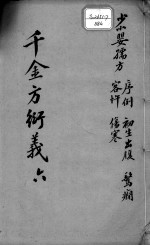 少小嬰孺方
序例 初生出腹 驚癇
客忤 傷寒
千金方衍義 六